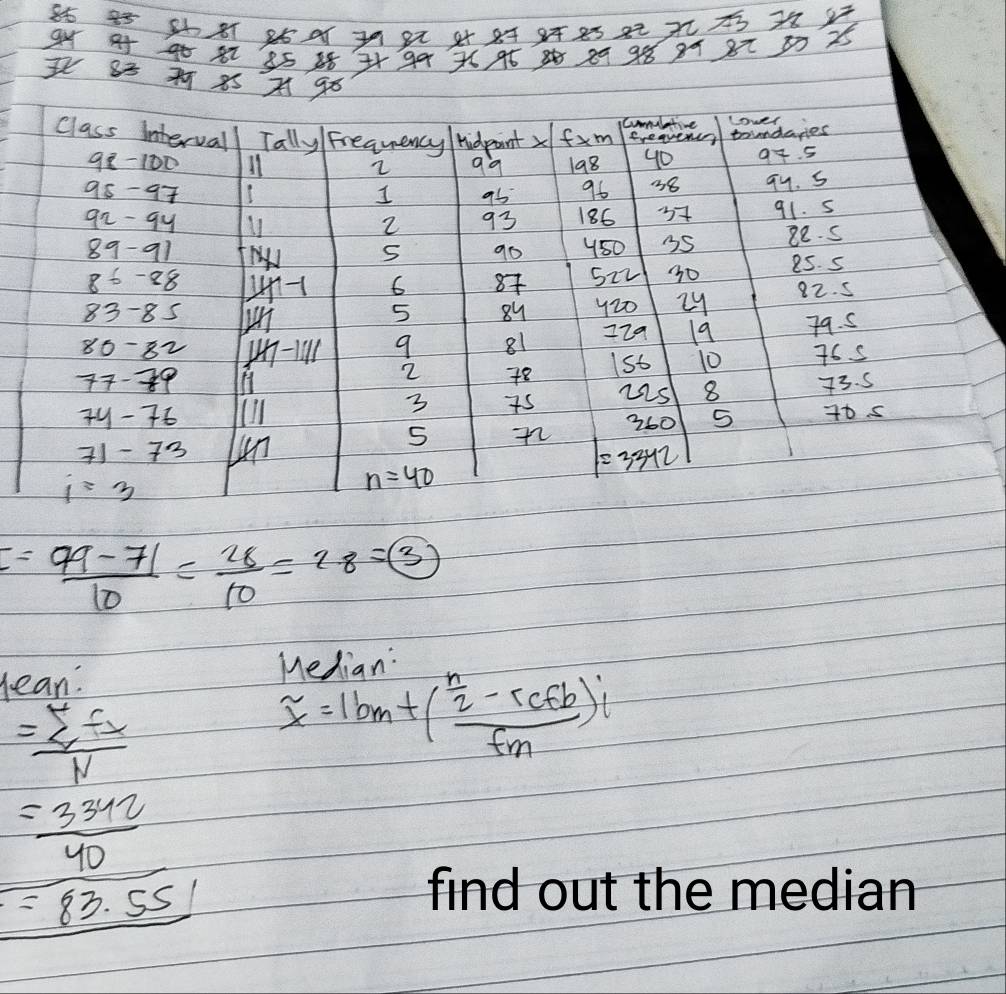 85 83 81 81 86 91 79 82 84 87 87 83 82 72 73 72 87
94 97 90 82 85 88 71 99 76 96 80 89 98 89 82 80 75
72 83 79 85 71 90
Class Interval Tally Frequency Midpoint x fxm Cummulative frequency Lower boundaries
98-100 || 2 99 198 40 97.5
95-97 | 1 96 96 38 94.5
92-94 || 2 93 186 37 91.5
89-91 5 90 450 35 88.5
86-88 6 87 522 30 85.5
83-85 5 84 420 24 82.5
80-82 9 81 729 19 79.5
77-79 || 2 78 156 10 76.5
74-76 ||| 3 75 225 8 73.5
71-73 5 72 360 5 70.5
i = 3 n=40 = 3342
= 99-71 / 10 = 28 / 10 = 2.8 = 3
Mean: Median:
= Σfx / N x̃ = lbm + ( n/2 - <cfb / fm ) i
= 3342 / 40
= 83.55
find out the median